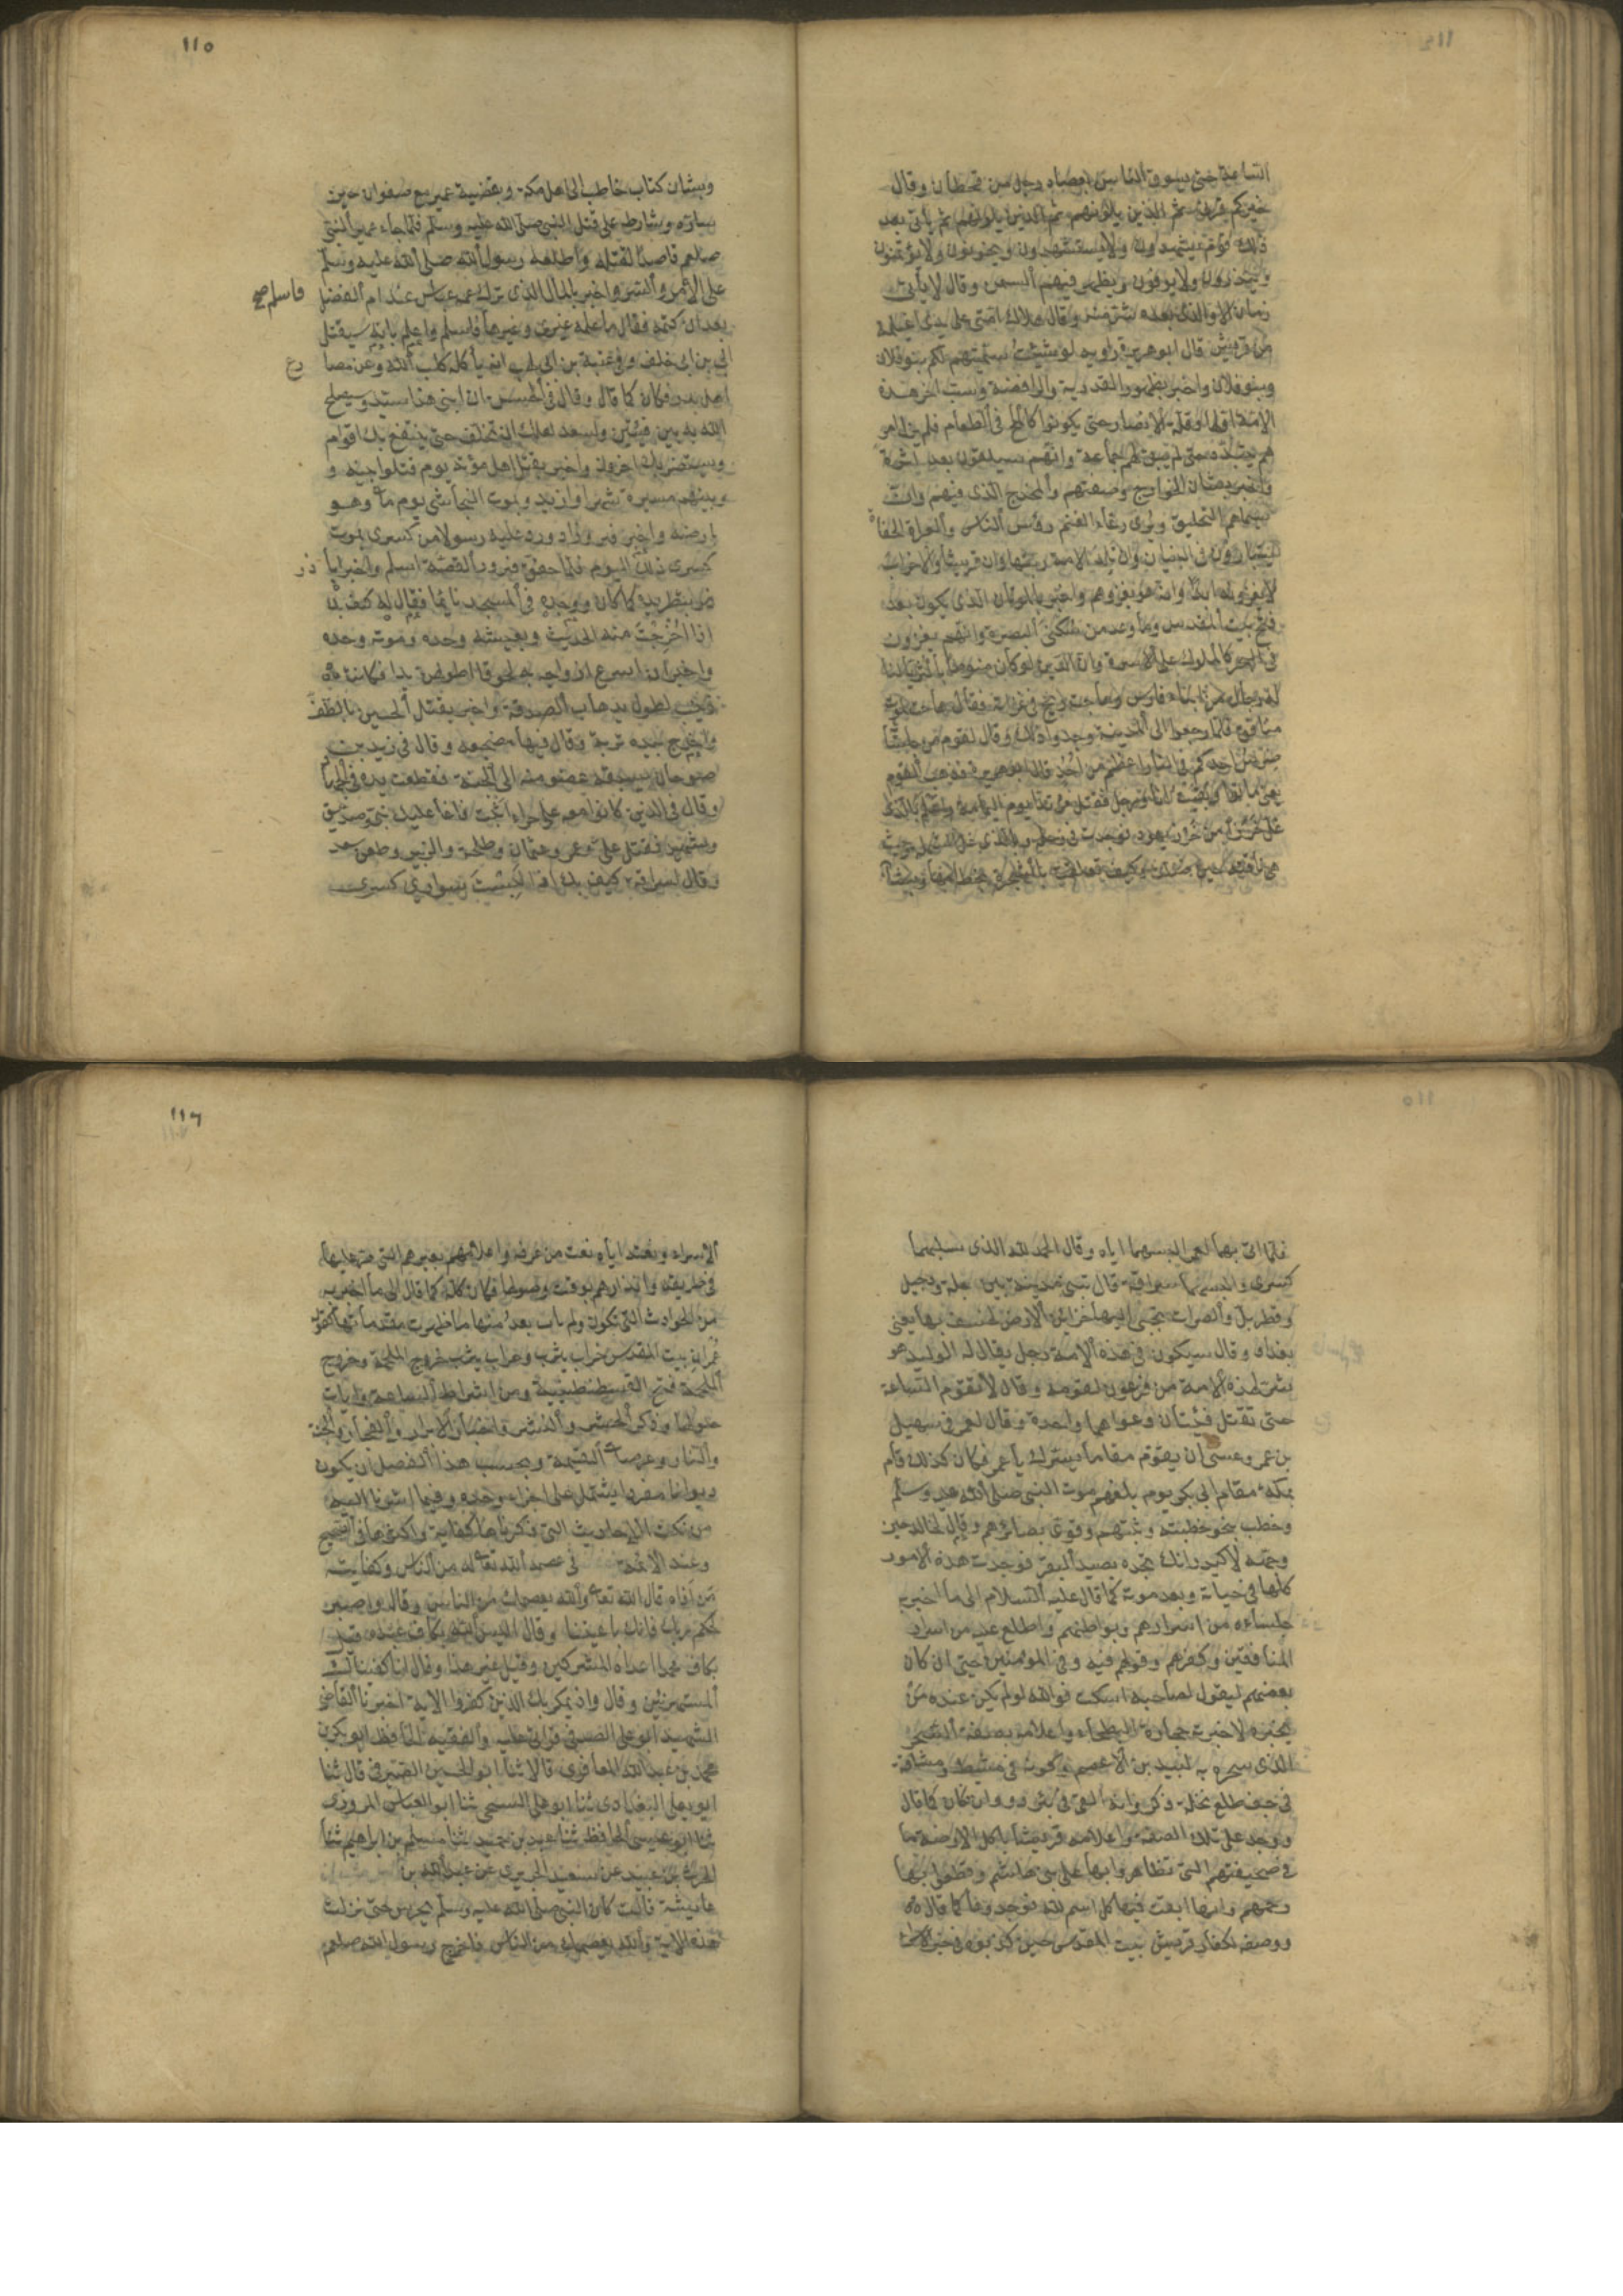 الساعة حتى يسوق الناس بعصاه رجل من قحطان وقال
خيركم قرنى ثم الذين يلونهم ثم الذين يلونهم ثم يأتى بعد
ذلك قوم يشهدون ولا يستشهدون ويخونون ولا يؤتمنون
وينذرون ولا يوفون ويظهر فيهم السمن وقال لا يأتى
زمان الا والذى بعده شر منه وقال هلاك امتى على يدى اغيلمة
من قريش قال ابو هريرة راويه لو شئت سميتهم لكم بنو فلان
وبنو فلان واخبر بظهور القدرية والرافضة وسب آخر هذه
الامة اولها وقلة الانصار حتى يكونوا كالملح فى الطعام فلم يزل امر
هم يتبدد حتى لم يبق لهم جماعة وانهم سيلقون بعد اثرة
واخبر بشان الخوارج وصفتهم والمخدج الذى فيهم وان
سيماهم التحليق ويرى رعاء الغنم رؤس الناس والعراة الحفاة
يتبارون فى البنيان وان تلد الامة ربتها وان قريشا والاحزاب
لا يغزونه ابدا وانه هو يغزوهم واخبر بالموتان الذى يكون بعد
فتح بيت المقدس وما وعد من سكنى البصرة وانهم يغزون
فى البحر كالملوك على الاسرة وان الدين لو كان منوطا بالثريا لنا
له رجال من ابناء فارس وهاجت ريح فى غزاته فقال هاجت لموت
منافق فلما رجعوا الى المدينة وجدوا ذلك وقال لقوم من جلسائه
ضرس احدكم فى النار اعظم من احد قال ابو هريرة فذهب القوم
يعنى ماتوا وبقيت انا ورجل فقتل مرتدا يوم اليمامة واعلم بالذى
غل خرزا من خرز يهود فوجدت فى رحله وبالذى غل الشملة وحيث
هى ناقته حين ضلت وكيف تعلقت بالشجرة بخطامها
110
وبشان كتاب حاطب الى اهل مكة وبقضية عمير مع صفوان حين
ساره وشارطه على قتل النبى صلى الله عليه وسلم فلما جاء عمير النبى
صلعم قاصدا لقتله واطلعه رسول الله صلى الله عليه وسلم
على الامر والسر واخبر بالمال الذى تركه عمه عباس عند ام الفضل
فاسلم صح
بعد ان كتمه فقال ما علمه غيرى وغيرها فاسلم واعلم بانه سيقتل
ابى بن ابى خلف وفى عتبة بن ابى لهب انه يأكله كلب الله وعن مصا
رع
اهل بدر فكان كما قال وقال فى الحسن ان ابنى هذا سيد وسيصلح
الله به بين فئتين ولسعد لعلك ان تخلف حتى ينتفع بك اقوام
ويستضر بك اخرون واخبر بقتل اهل مؤتة يوم قتلوا وبينه و
وبينهم مسيرة شهر او ازيد وبموت النجاشى يوم مات وهو
بارضه واخبر فيروز اذ ورد عليه رسولا من كسرى بموت
كسرى ذلك اليوم فلما حقق فيروز القصة اسلم واخبر ابا
ذر
ذر بتطريده كما كان ووجده فى المسجد نائما فقال له كيف بك
اذا اخرجت منه الحديث وبعيشه وحده وموته وحده
واخبر ان اسرع ازواجه به لحوقا اطولهن يدا فكانت
زينب لطول يدها بالصدقة واخبر بقتل الحسين بالطف
واخرج بيده تربة وقال فيها مضجعه وقال فى زيد بن
صوحان يسبقه عضو منه الى الجنة فقطعت يده فى الجهاد
وقال فى الذين كانوا معه على حراء اثبت فانما عليك نبى وصديق
وشهيد فقتل على وعمر وعثمان وطلحة والزبير وطعن سعد
وقال لسراقة كيف بك اذا لبست سوارى كسرى
فلما اتى بهما لعمر البسهما اياه وقال الحمد لله الذى سلبهما
كسرى والبسهما سراقة قال تبنى مدينة بين دجلة ودجيل
وقطربل والصراة تجبى اليها خزائن الارض يخسف بها يعنى
بغداد وقال سيكون فى هذه الامة رجل يقال له الوليد هو
شر لهذه الامة من فرعون لقومه وقال لا تقوم الساعة
حتى تقتل فئتان دعواهما واحدة وقال لعمر فى سهيل
بن عمر وعسى ان يقوم مقاما يسرك يا عمر فكان كذلك قام
بمكة مقام ابى بكر يوم بلغهم موت النبى صلى الله عليه وسلم
وخطب بنحو خطبته وثبتهم وقوى بصائرهم وقال لخالد حين
وجهه لاكيدر انك تجده يصيد البقر فوجدت هذه الامور
كلها فى حياته وبعد موته كما قال عليه السلام الى ما اخبر به
جلساءه من اسرارهم وبواطنهم واطلع عليه من اسرار
المنافقين وكفرهم وقولهم فيه وفى المؤمنين حتى ان كان
بعضهم ليقول لصاحبه اسكت فوالله لو لم يكن عنده من
يخبره لاخبرته حجارة البطحاء واعلامه بصفة السحر
الذى سحره به لبيد بن الاعصم وكونه فى مشط ومشاقة
فى جف طلع نخلة ذكر وانه القى فى بئر ذروان فكان كما قال
ووجد على تلك الصفة واعلامه قريشا باكل الارضة ما
فى صحيفتهم التى تظاهروا بها على بنى هاشم وقطعوا بها
رحمهم وانها ابقت فيها كل اسم لله فوجدوها كما قال
ووصفه لكفار قريش بيت المقدس حين كذبوه فى خبر الاسراء
116
الاسراء ونعته اياه نعت من عرفه واعلامهم بعيرهم التى مر عليها
فى طريقه وانذارهم بوقت وصولها فكان كله كما قال الى ما اخبر به
من الحوادث التى تكون ولم يات بعد منها ما ظهرت مقدماتها كقوله
عمران بيت المقدس خراب يثرب وخراب يثرب خروج الملحمة وخروج
الملحمة فتح القسطنطينية ومن اشراط الساعة وايات
حلولها وذكر الحشر والنشر واخبار الابرار والفجار والجنة
والنار وعرصات القيمة وبحسب هذا الفصل ان يكون
ديوانا مفردا يشتمل على اجزاء وحده وفيما اشرنا اليه
من نكت الاحاديث التى ذكرناها كفاية واكثرها فى الصحيح
وعند الائمة فى عصمة الله تعالى له من الناس وكفايته
من اذاه قال الله تعالى والله يعصمك من الناس وقال واصبر
لحكم ربك فانك باعيننا وقال اليس الله بكاف عبده قيل
بكاف محمدا اعداه المشركين وقيل غير هذا وقال انا كفيناك
المستهزئين وقال واذ يمكر بك الذين كفروا الاية اخبرنا القاضى
الشهيد ابو على الصدفى قراتى عليه والفقيه الحافظ ابو بكر بن
محمد بن عبد الله المعافرى قالا ثنا ابو الحسين الصيرفى قال ثنا
ابو يعلى البغدادى ثنا ابو على السنجى ثنا ابو العباس المروزى
ثنا ابو عيسى الحافظ ثنا عبد بن حميد ثنا مسلم بن ابراهيم ثنا
الحرث بن عبيد عن سعيد الجريرى عن عبد الله بن
عائيشة قالت كان النبى صلى الله عليه وسلم يحرس حتى نزلت
هذه الاية والله يعصمك من الناس فاخرج رسول الله صلعم